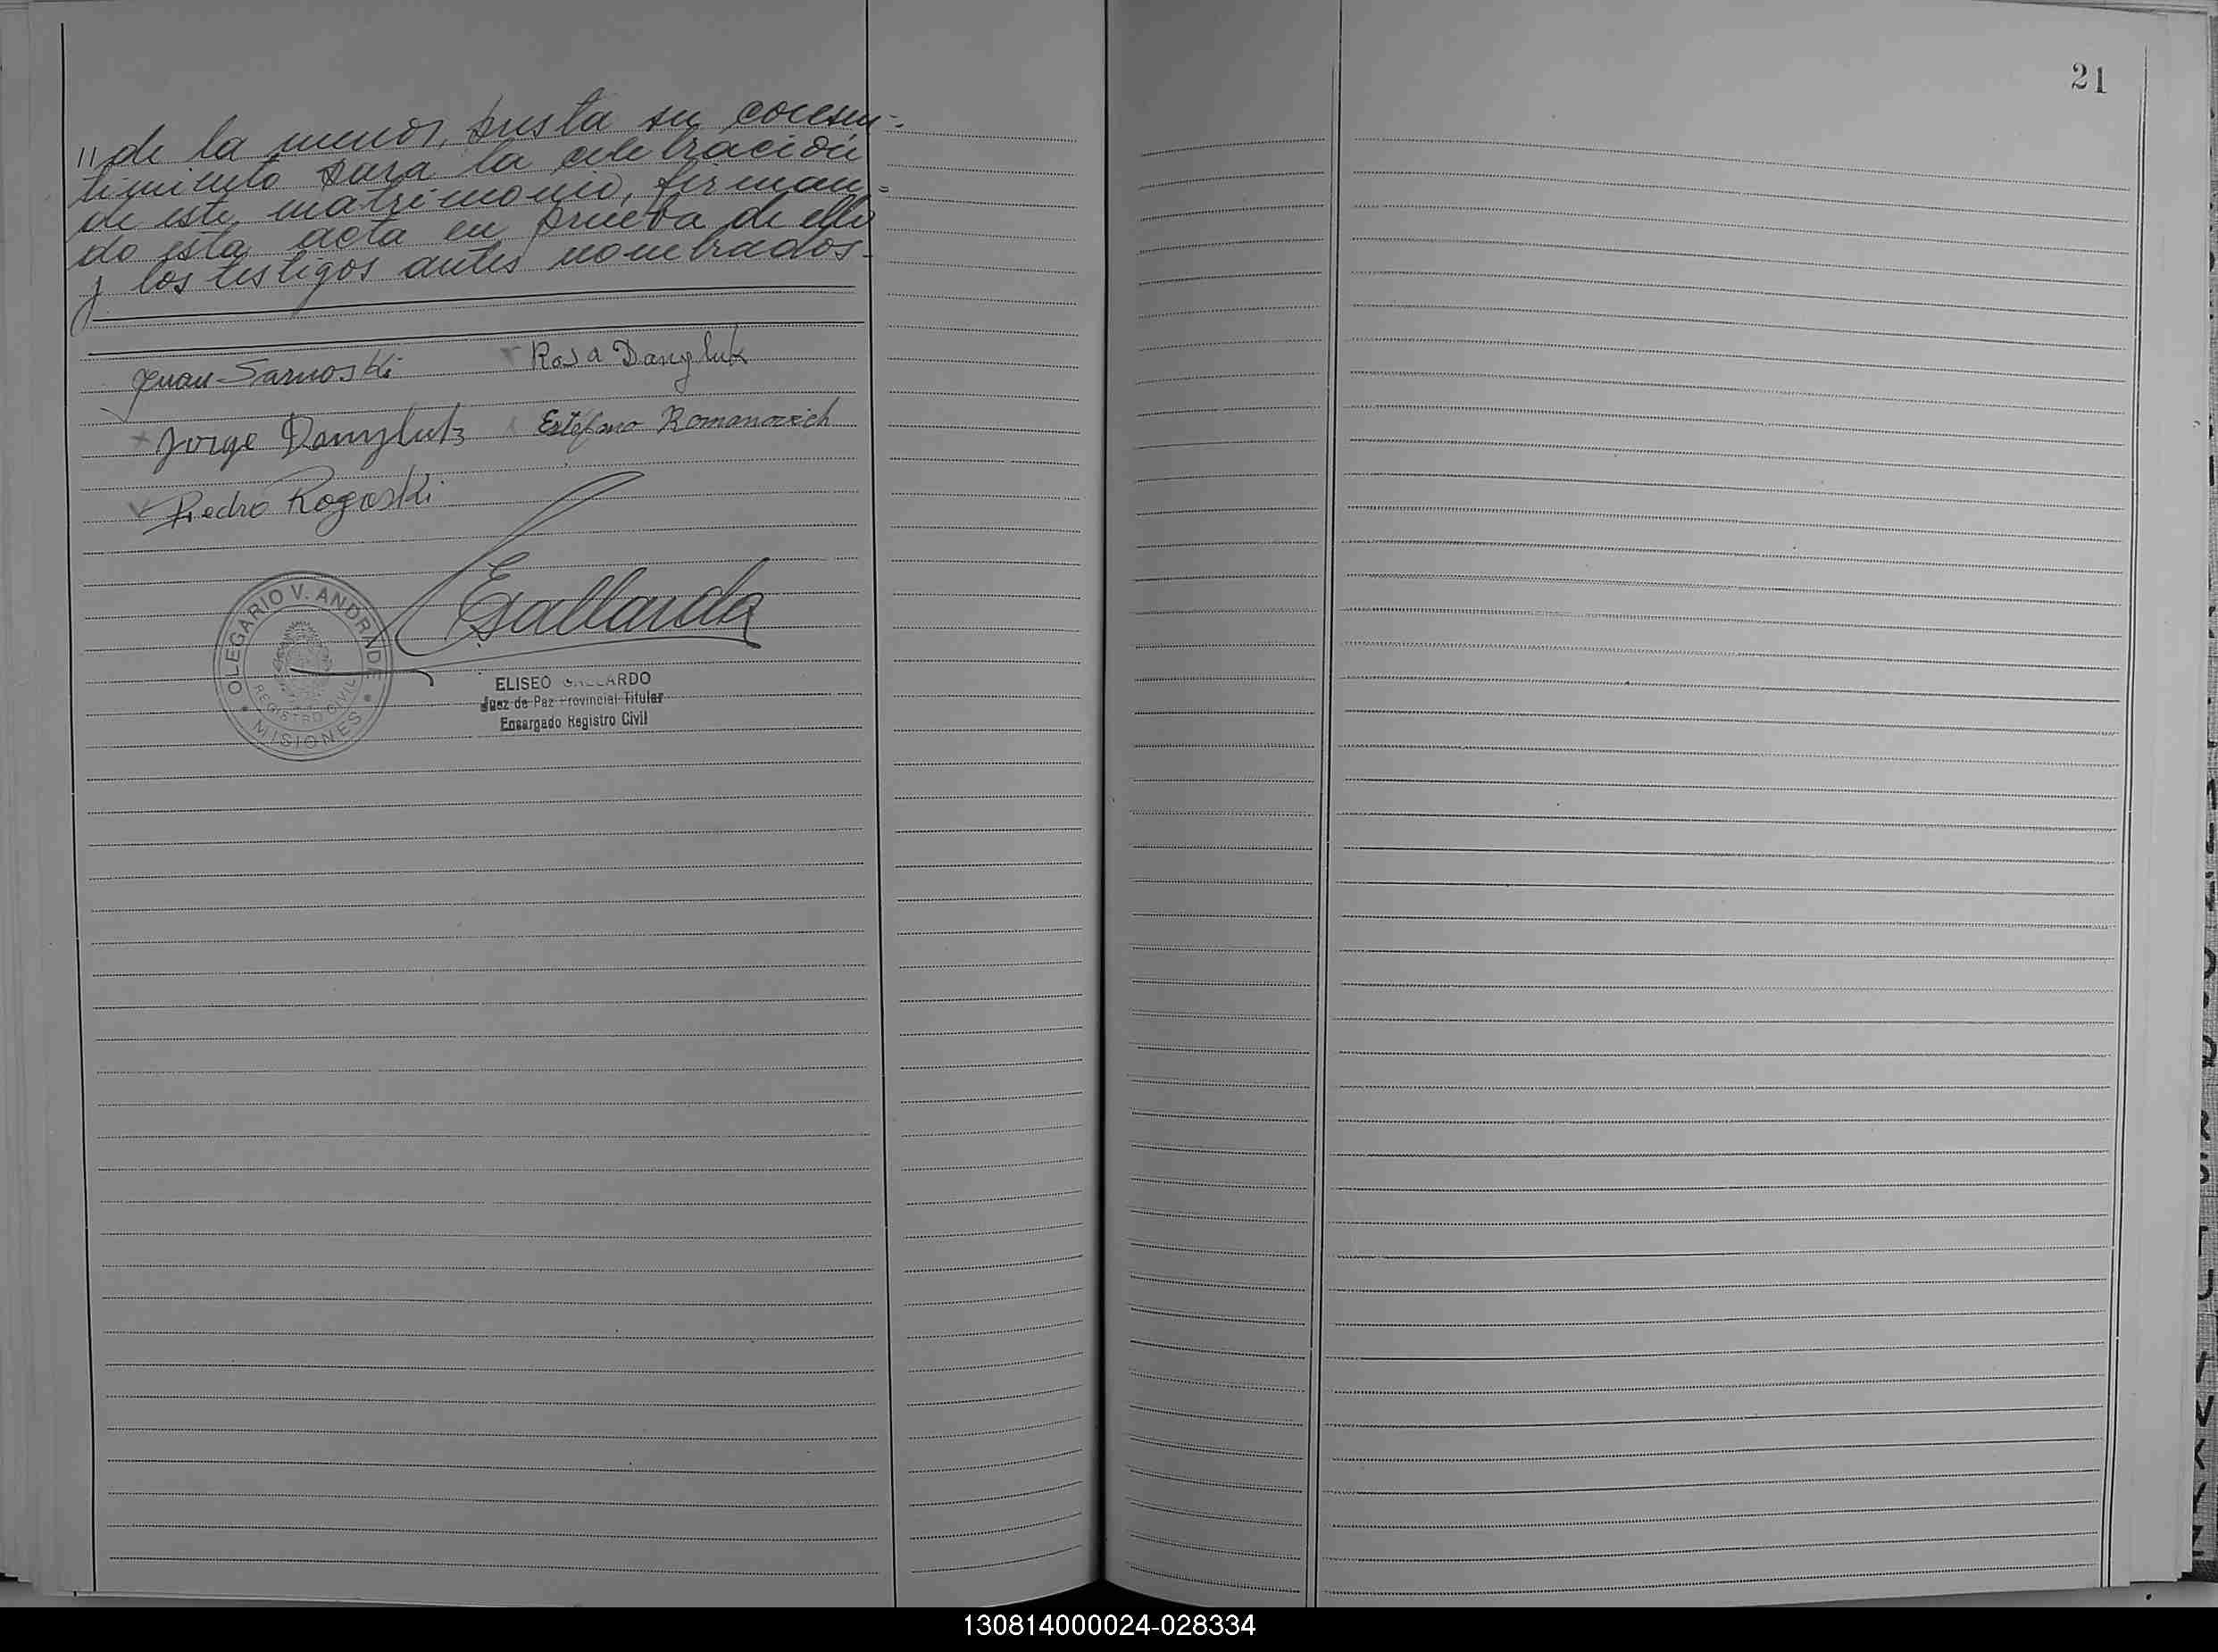 // de la menor, presta su consen-
timiento para la celebración
de este matrimonio, firman-
do esta acta en prueba de ello
y los testigos antes nombrados.-
Juan Sarnoski Rosa Dangluk
Jorge Danyluk Estefano Romanovich
Piedro Rogoski
EGallardo
OLEGARIO V. ANDRADE
REGISTRO CIVIL
* MISIONES *
ELISEO GALLARDO
Juez de Paz Provincial Titular
Encargado Registro Civil
21
130814000024-028334